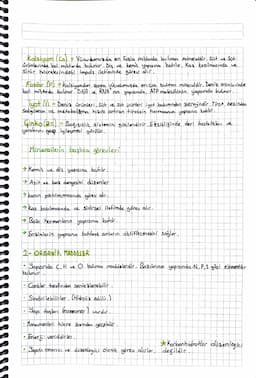 Kalsiyum (Ca) → Vücudumuzda en fazla miktarda bulunan mineraldir. Süt ve süt
ürünlerinde bol miktarda bulunur. Diş ve kemik yapısına katılır. Kas kasılmasında ve
sinir hücrelerindeki impuls iletiminde görev alır.
Fosfor (P) → Kalsiyumdan sonra vücudumuzda en çok bulunan mineraldir.
bol miktarda bulunur. DNA ve RNA'nın yapısında, ATP molekülünün yapısında bulunur.
İyot (I) → Deniz ürünleri, süt ve süt ürünleri iyot bakımından zengindir. Tiroit bezinden
salgılanan ve metabolizma hızını artıran tiroksin hormonunun yapısına katılır.
Çinko (Zn) → Bağışıklık sistemini güçlendirir. Eksikliğinde deri hastalıkları ve
yaraların geç iyileşmesi görülür.
Minerallerin başlıca görevleri
→ Kemik ve diş yapısına katılır.
→ Asit ve baz dengesini düzenler
→ kanın pıhtılaşmasında görev alır.
→ Kas kasılmasında ve sinirsel iletimde görev alır.
→ Bazı hormonların yapısına katılır.
→ Enzimlerin yapısına katılarak onların aktifleşmesini sağlar.
2- ORGANİK MADDELER
- Yapısında C, H ve O bulunan maddelerdir. Bazılarının yapısında N, P, S gibi elementler
bulunur.
- Canlılar tarafından sentezlenebilir.
- Sindirilebilirler. (Hidroliz edilir)
- Yapı taşları (monomer) vardır.
- Monomerleri hücre zarından geçebilir.
- Enerji vericidirler.
- Yapıcı onarıcı ve düzenleyici olarak görev alırlar.
★ Karbonhidratlar düzenleyici
değildir.